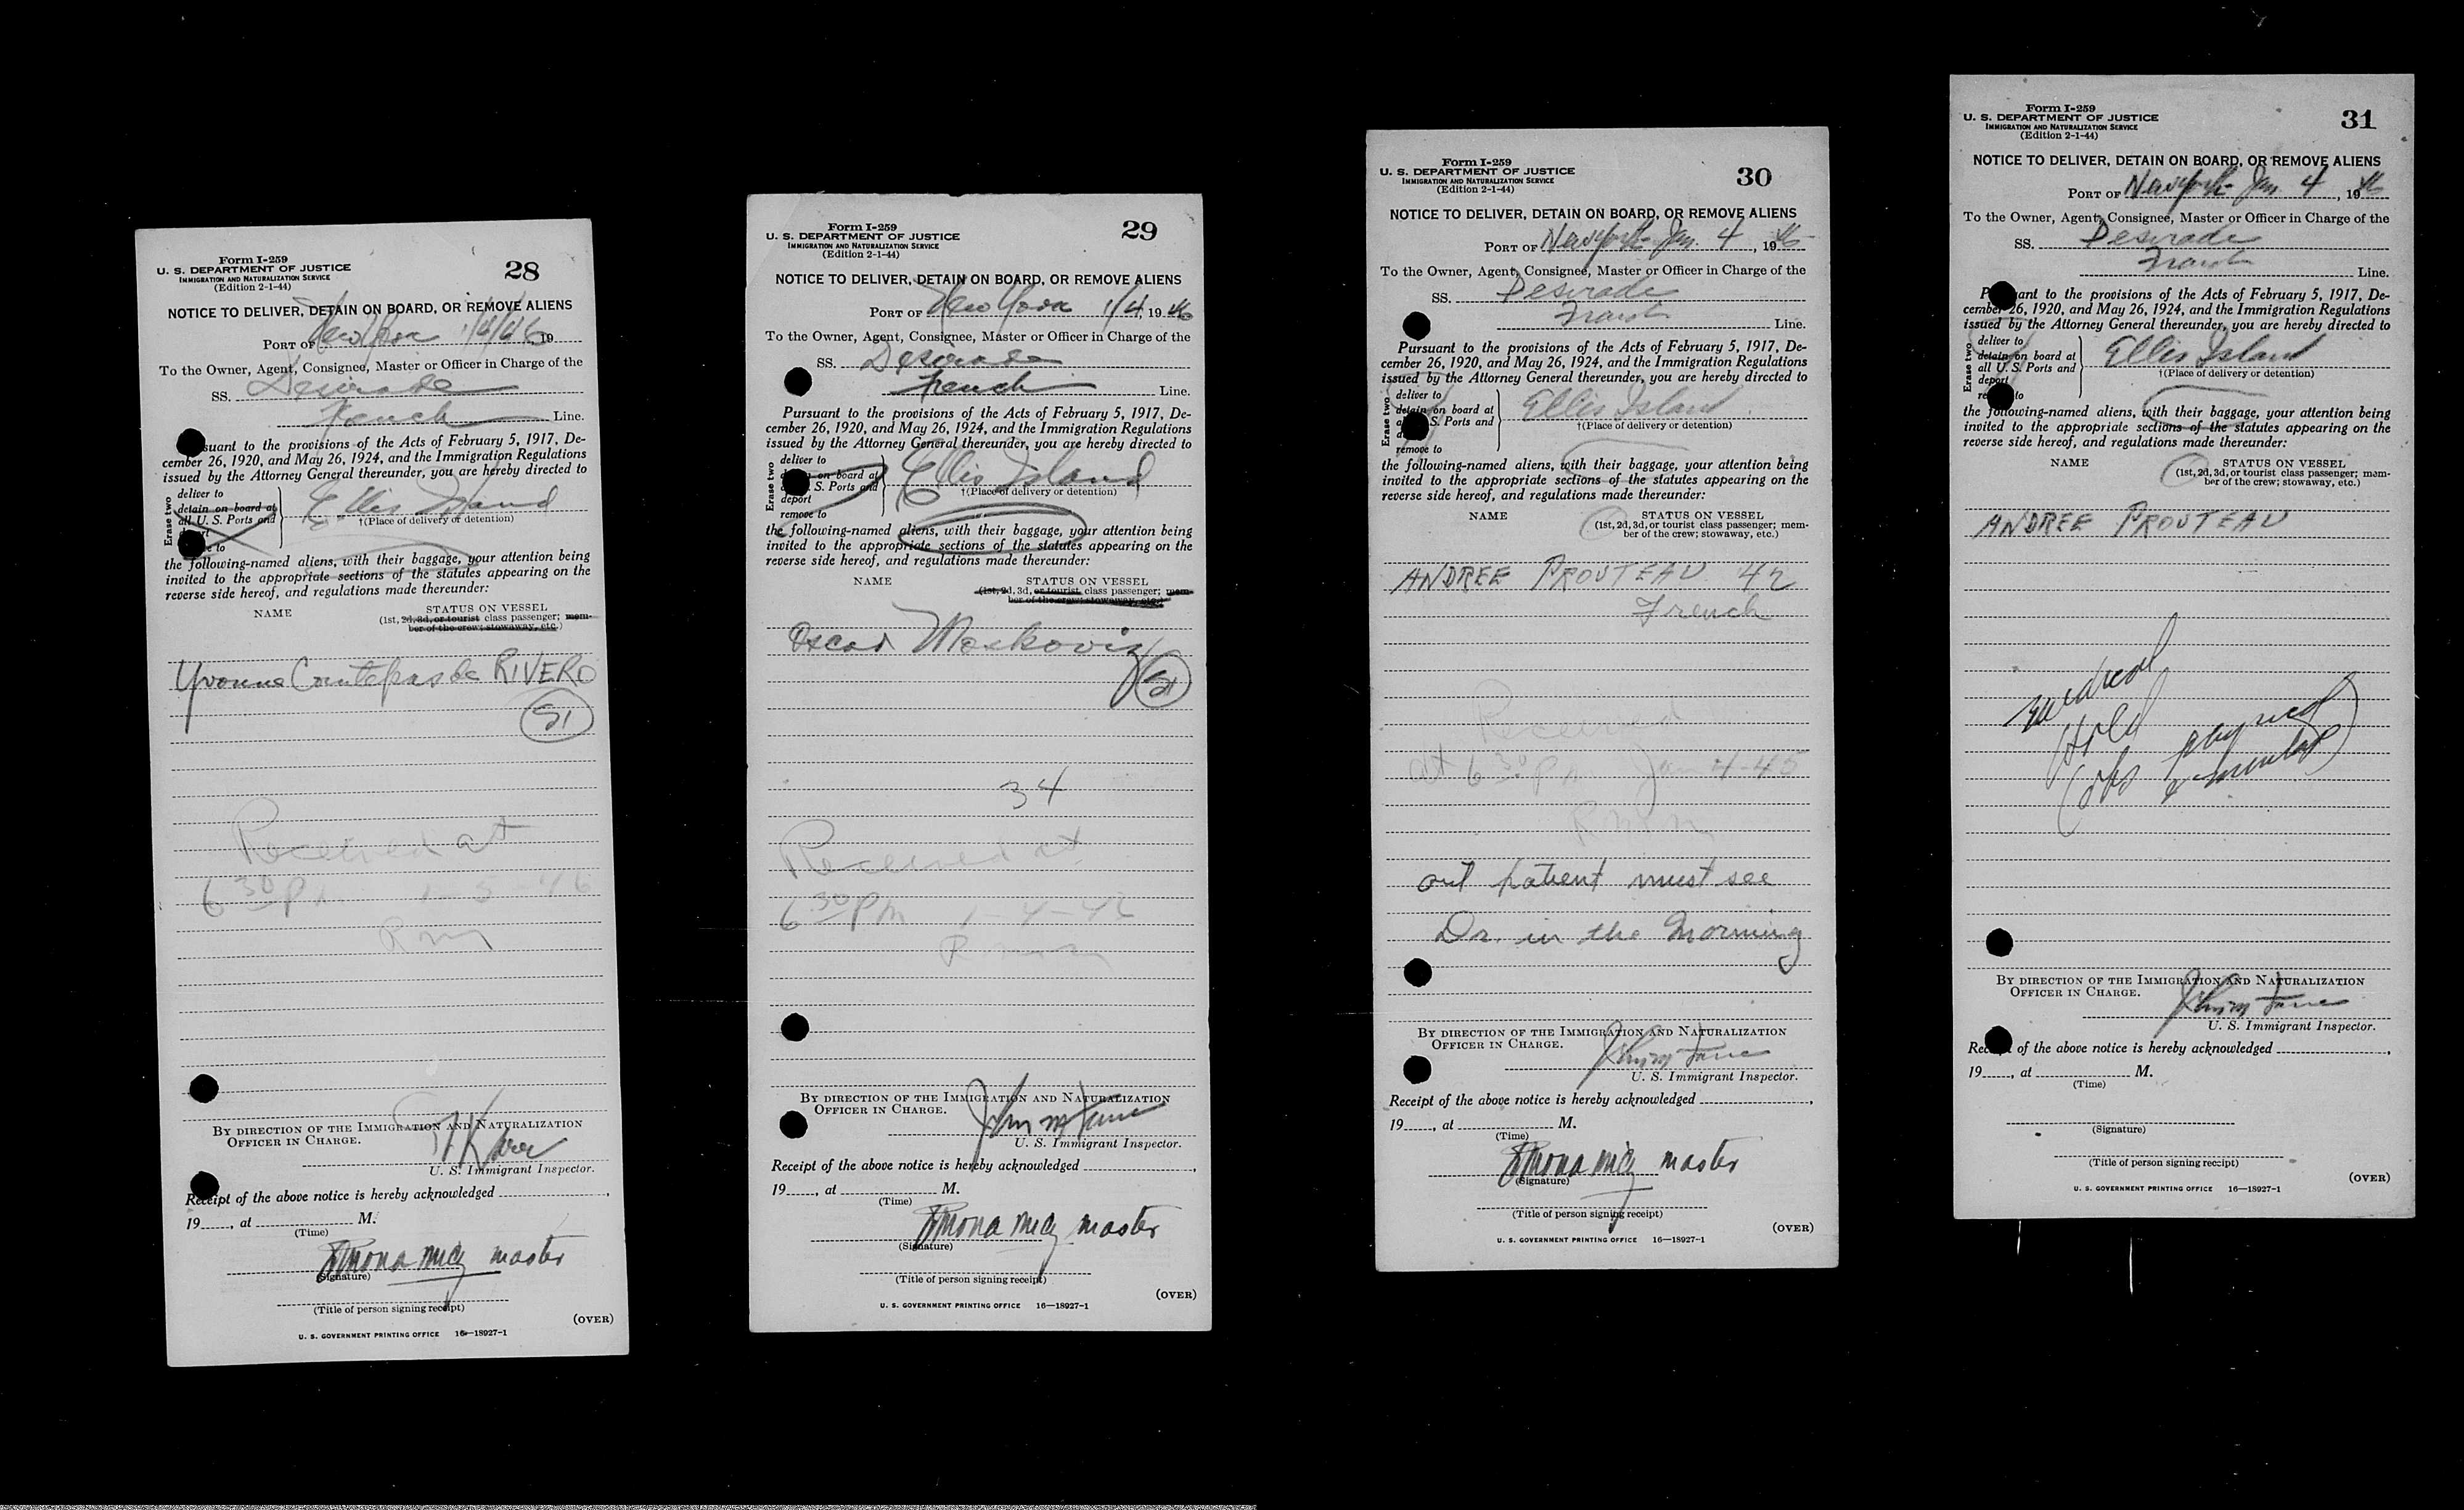 Form I-259
U. S. DEPARTMENT OF JUSTICE
IMMIGRATION AND NATURALIZATION SERVICE
(Edition 2-1-44)
28
NOTICE TO DELIVER, DETAIN ON BOARD, OR REMOVE ALIENS
PORT OF New York 1/4/46 19
To the Owner, Agent, Consignee, Master or Officer in Charge of the
SS. Desirade
French Line.
suant to the provisions of the Acts of February 5, 1917, De-
cember 26, 1920, and May 26, 1924, and the Immigration Regulations
issued by the Attorney General thereunder, you are hereby directed to
Erase two
deliver to
detain on board at
all U. S. Ports and
to
Ellis Island
†(Place of delivery or detention)
the following-named aliens, with their baggage, your attention being
invited to the appropriate sections of the statutes appearing on the
reverse side hereof, and regulations made thereunder:
NAME STATUS ON VESSEL
(1st, 2d, 3d, or tourist class passenger; mem-
ber of the crew; stowaway, etc.)
Yvonne RIVERO
SI
Received at
6 30 PM 1-5-46
BY DIRECTION OF THE IMMIGRATION AND NATURALIZATION
OFFICER IN CHARGE.
U. S. Immigrant Inspector.
Receipt of the above notice is hereby acknowledged
19 , at M.
(Time)
master
(Signature)
(Title of person signing receipt)
(OVER)
U. S. GOVERNMENT PRINTING OFFICE 16—18927-1
Form I-259
U. S. DEPARTMENT OF JUSTICE
IMMIGRATION AND NATURALIZATION SERVICE
(Edition 2-1-44)
29
NOTICE TO DELIVER, DETAIN ON BOARD, OR REMOVE ALIENS
PORT OF New York 1/4, 19 46
To the Owner, Agent, Consignee, Master or Officer in Charge of the
SS. Desirade
French Line.
Pursuant to the provisions of the Acts of February 5, 1917, De-
cember 26, 1920, and May 26, 1924, and the Immigration Regulations
issued by the Attorney General thereunder, you are hereby directed to
Erase two
deliver to
on board at
S. Ports and
deport
remove to
Ellis Island
†(Place of delivery or detention)
the following-named aliens, with their baggage, your attention being
invited to the appropriate sections of the statutes appearing on the
reverse side hereof, and regulations made thereunder:
NAME STATUS ON VESSEL
(1st, 2d, 3d, or tourist class passenger; mem-
ber of the crew; stowaway, etc.)
Oscar Moskoviz
SI
34
Received at
6 30 PM 1-4-42
BY DIRECTION OF THE IMMIGRATION AND NATURALIZATION
OFFICER IN CHARGE.
U. S. Immigrant Inspector.
Receipt of the above notice is hereby acknowledged
19 , at M.
(Time)
master
(Signature)
(Title of person signing receipt)
(OVER)
U. S. GOVERNMENT PRINTING OFFICE 16—18927-1
Form I-259
U. S. DEPARTMENT OF JUSTICE
IMMIGRATION AND NATURALIZATION SERVICE
(Edition 2-1-44)
30
NOTICE TO DELIVER, DETAIN ON BOARD, OR REMOVE ALIENS
PORT OF New York Jan. 4, 19 46
To the Owner, Agent, Consignee, Master or Officer in Charge of the
SS. Desirade
French Line.
Pursuant to the provisions of the Acts of February 5, 1917, De-
cember 26, 1920, and May 26, 1924, and the Immigration Regulations
issued by the Attorney General thereunder, you are hereby directed to
Erase two
deliver to
detain on board at
S. Ports and
remove to
Ellis Island
†(Place of delivery or detention)
the following-named aliens, with their baggage, your attention being
invited to the appropriate sections of the statutes appearing on the
reverse side hereof, and regulations made thereunder:
NAME STATUS ON VESSEL
(1st, 2d, 3d, or tourist class passenger; mem-
ber of the crew; stowaway, etc.)
ANDREE PROUTEAU 42
French
Received
at 6 30 PM Jan 4-45
out patient must see
Dr. in the Morning
BY DIRECTION OF THE IMMIGRATION AND NATURALIZATION
OFFICER IN CHARGE.
U. S. Immigrant Inspector.
Receipt of the above notice is hereby acknowledged
19 , at M.
(Time)
master
(Signature)
(Title of person signing receipt)
(OVER)
U. S. GOVERNMENT PRINTING OFFICE 16—18927-1
Form I-259
U. S. DEPARTMENT OF JUSTICE
IMMIGRATION AND NATURALIZATION SERVICE
(Edition 2-1-44)
31
NOTICE TO DELIVER, DETAIN ON BOARD, OR REMOVE ALIENS
PORT OF New York Jan. 4, 19 46
To the Owner, Agent, Consignee, Master or Officer in Charge of the
SS. Desirade
French Line.
P ant to the provisions of the Acts of February 5, 1917, De-
cember 26, 1920, and May 26, 1924, and the Immigration Regulations
issued by the Attorney General thereunder, you are hereby directed to
Erase two
deliver to
detain on board at
all U. S. Ports and
deport
re to
Ellis Island
†(Place of delivery or detention)
the following-named aliens, with their baggage, your attention being
invited to the appropriate sections of the statutes appearing on the
reverse side hereof, and regulations made thereunder:
NAME STATUS ON VESSEL
(1st, 2d, 3d, or tourist class passenger; mem-
ber of the crew; stowaway, etc.)
ANDREE PROUTEAU
medical
Hold
BY DIRECTION OF THE IMMIGRATION AND NATURALIZATION
OFFICER IN CHARGE.
U. S. Immigrant Inspector.
Receipt of the above notice is hereby acknowledged
19 , at M.
(Time)
(Signature)
(Title of person signing receipt)
(OVER)
U. S. GOVERNMENT PRINTING OFFICE 16—18927-1